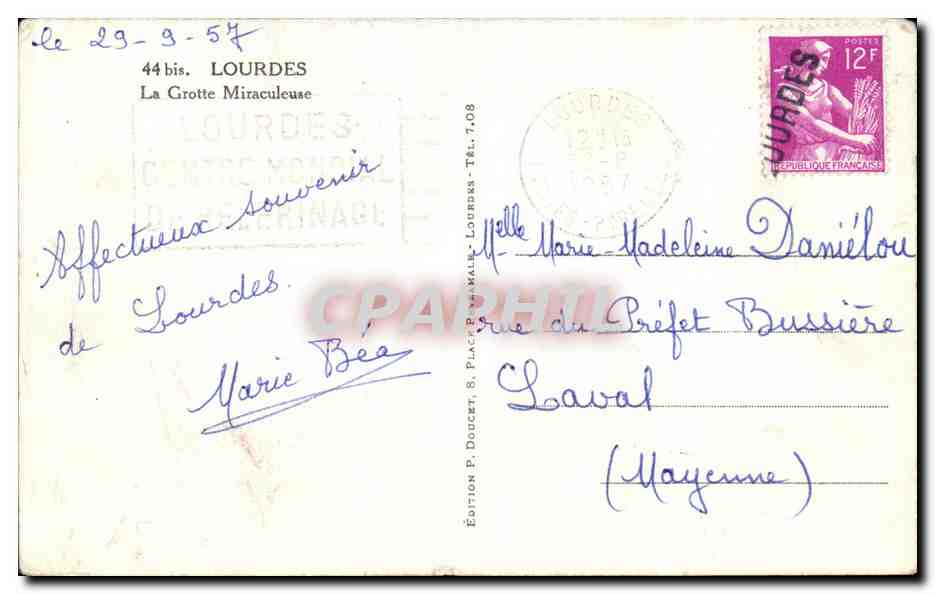 le 29-9-57
44 bis. LOURDES
La Grotte Miraculeuse
LOURDES
CENTRE MONDIAL
DE PELERINAGE
LOURDES
POSTES
12F
REPUBLIQUE FRANÇAISE
OURDES
Affectueux souvenir
de Lourdes.
Marie Béa
EDITION P. DOUCET, 8, PLACE PEYRAMALE - LOURDES - TÉL. 7.08
Melle Marie-Madeleine Daniélou
rue du Préfet Bussière
Laval
(Mayenne)
CPAPHIL